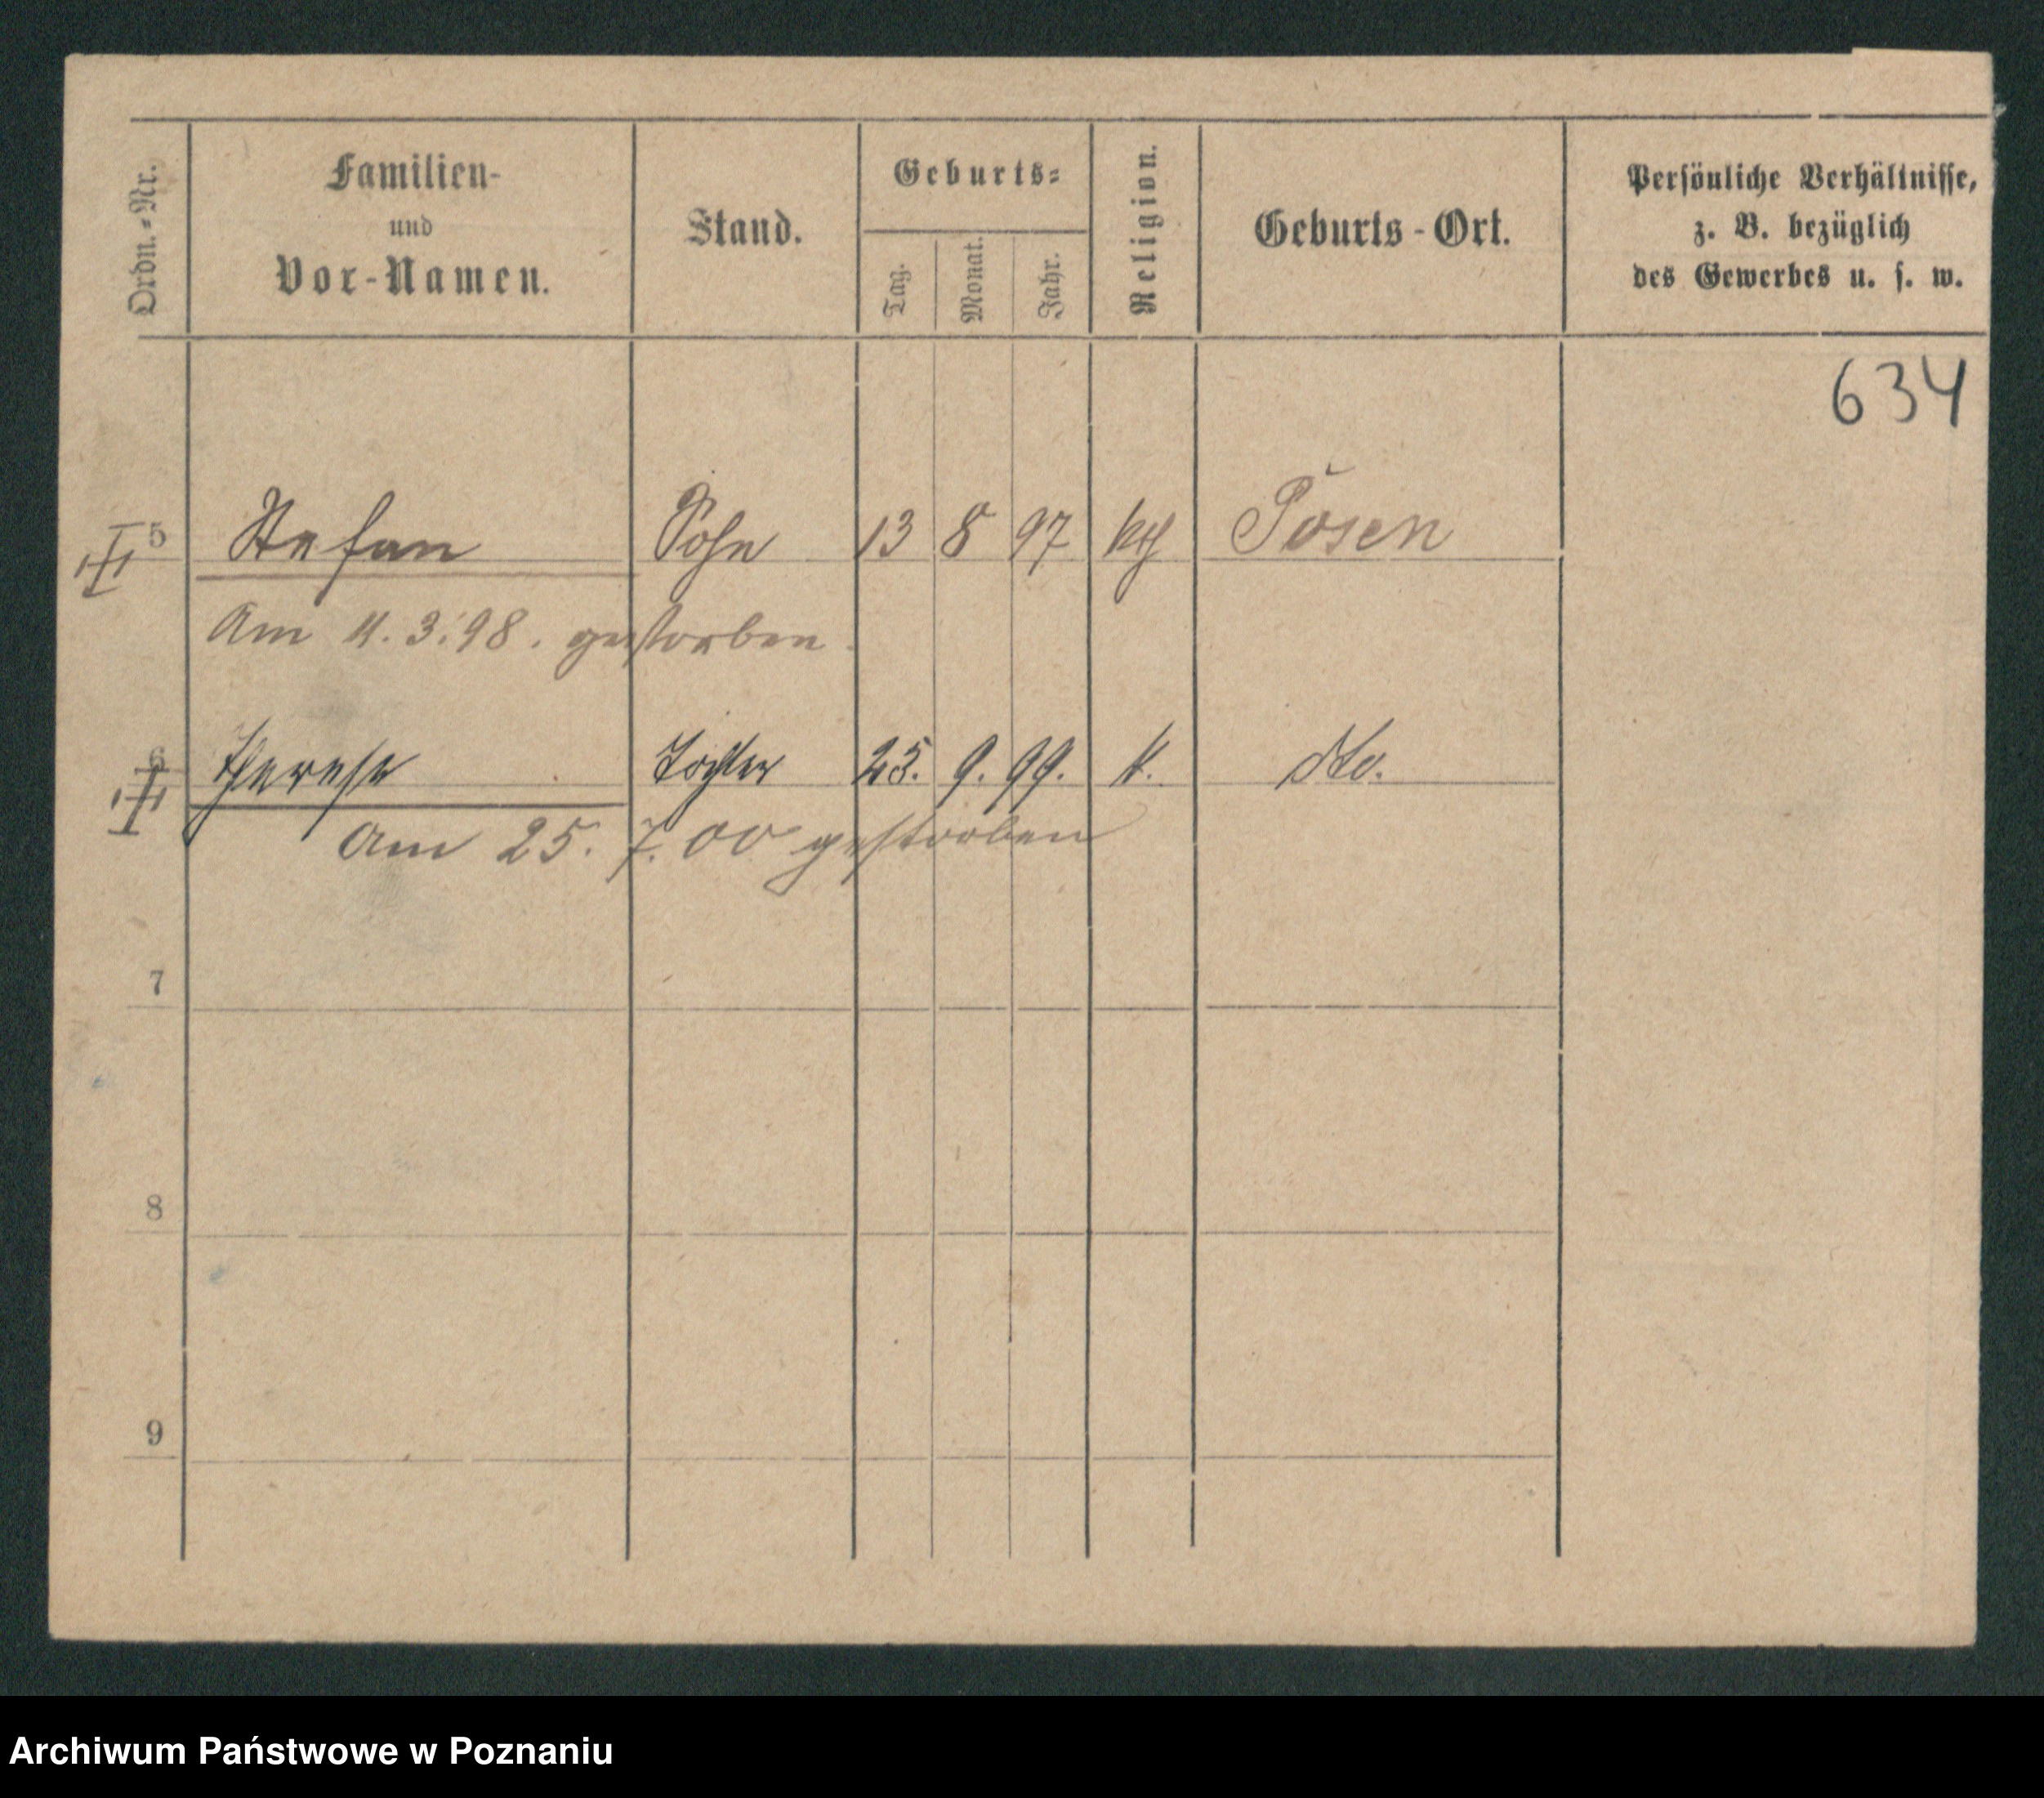 Ordn.-Nr.
Familien-
und
Vor-Namen.
Stand.
Geburts-
Tag.
Monat.
Jahr.
Religion.
Geburts-Ort.
Persönliche Verhältnisse,
z. B. bezüglich
des Gewerbes u. s. w.
634
5 Stefan Sohn 13 8 97 kth Posen
Am 11.3.98. gestorben.
6 Therese Tochter 25. 9. 99. k. dto.
Am 25. 7. 00 gestorben
7
8
9
Archiwum Państwowe w Poznaniu